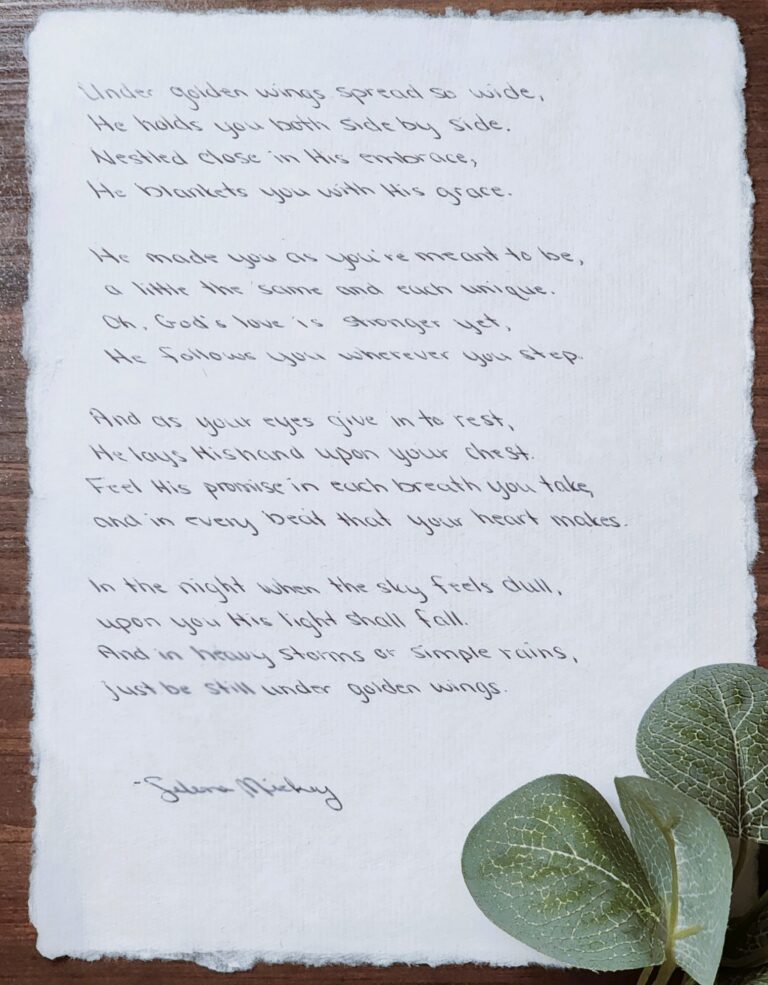 Under golden wings spread so wide,
He holds you both side by side.
Nestled close in His embrace,
He blankets you with His grace.
He made you as you're meant to be,
a little the same and each unique.
Oh, God's love is stronger yet,
He follows you wherever you step.
And as your eyes give in to rest,
He lays His hand upon your chest.
Feel His promise in each breath you take,
and in every beat that your heart makes.
In the night when the sky feels dull,
upon you His light shall fall.
And in heavy storms or simple rains,
just be still under golden wings.
-Selena Mickey